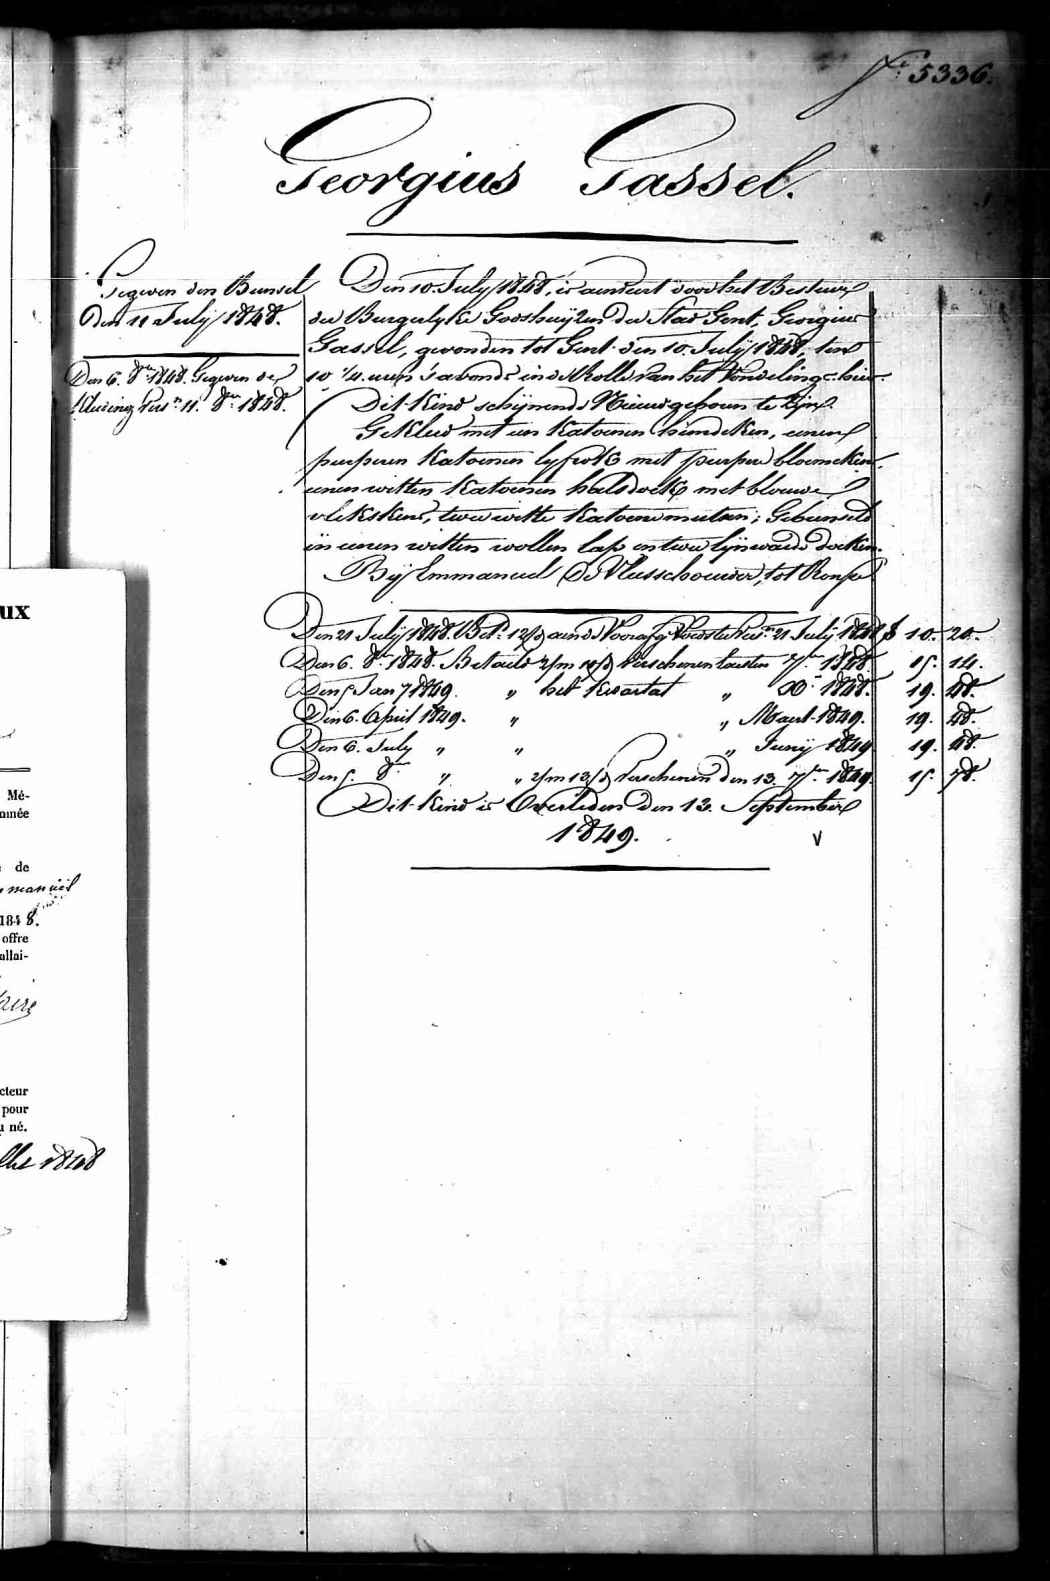 N.º 5336.
Georgius Gassel.
Gegeven den Bunsel
den 11 July 1848.
Den 6. 8.er 1848. Gegeven de
Kleeding Vers.n 11. 8.er 1848.
Den 10. July 1848, is aenveirt door het Bestuur
der Burgerlyke Godshuyzen der Stad Gent, Georgius
Gassel, gevonden tot Gent den 10. July 1848, ten
10 1/4 uren s'avonds in de Rolle van het Vondelingshuis.
Dit kind schynende Nieuwgeboren te zyn.
Gekleed met een katoenen hemdeken, eenen
purperen katoenen lyfrok met purper bloemeken,
eenen witten katoenen halsdoek met blouwe
vlekskens, twee witte katoene mutsen; Gebunseld
in eenen witten wollen lap en twee lynwaede doeken.
By Emmanuel De Vleeschouwer, tot Ronse
Den 21 July 1848. Bet.d 12/f aen de Voorafg. Voedster Vers.n 21 July 1848 f 10. 20.
Den 6. 8.er 1848. Betaeld 2/m Verschenen laesten 7.er 1848. 15. 14.
Den 5 Jan.y 1849. " het Kwartal " X.er 1848. 19. 48.
Den 6. April 1849. " " Maert 1849. 19. 48.
Den 6. July " " " Juny 1849. 19. 48.
Den 5. 8.er " " 2/m 13/d Verschenen den 13. 7.er 1849. 15. 78.
Dit Kind is Overleden den 13. September
1849. V
ux
Mé-
mmée
de
manuël
1848.
offre
allai-
aire
cteur
pour
u né.
llet 1848